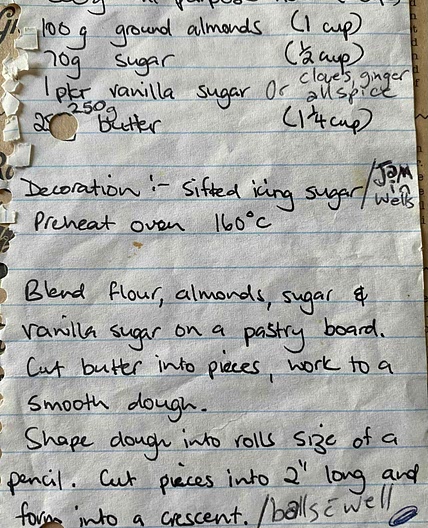 100g ground almonds (1 cup)
70g sugar (½ cup)
1 pkt vanilla sugar Or cloves, ginger allspice
250g
25 butter (1¼ cup)
Decoration :- Sifted icing sugar / Jam in wells
Preheat oven 160°C
Blend flour, almonds, sugar &
vanilla sugar on a pastry board.
Cut butter into pieces, work to a
smooth dough.
Shape dough into rolls size of a
pencil. Cut pieces into 2" long and
form into a crescent. / balls c̄ well